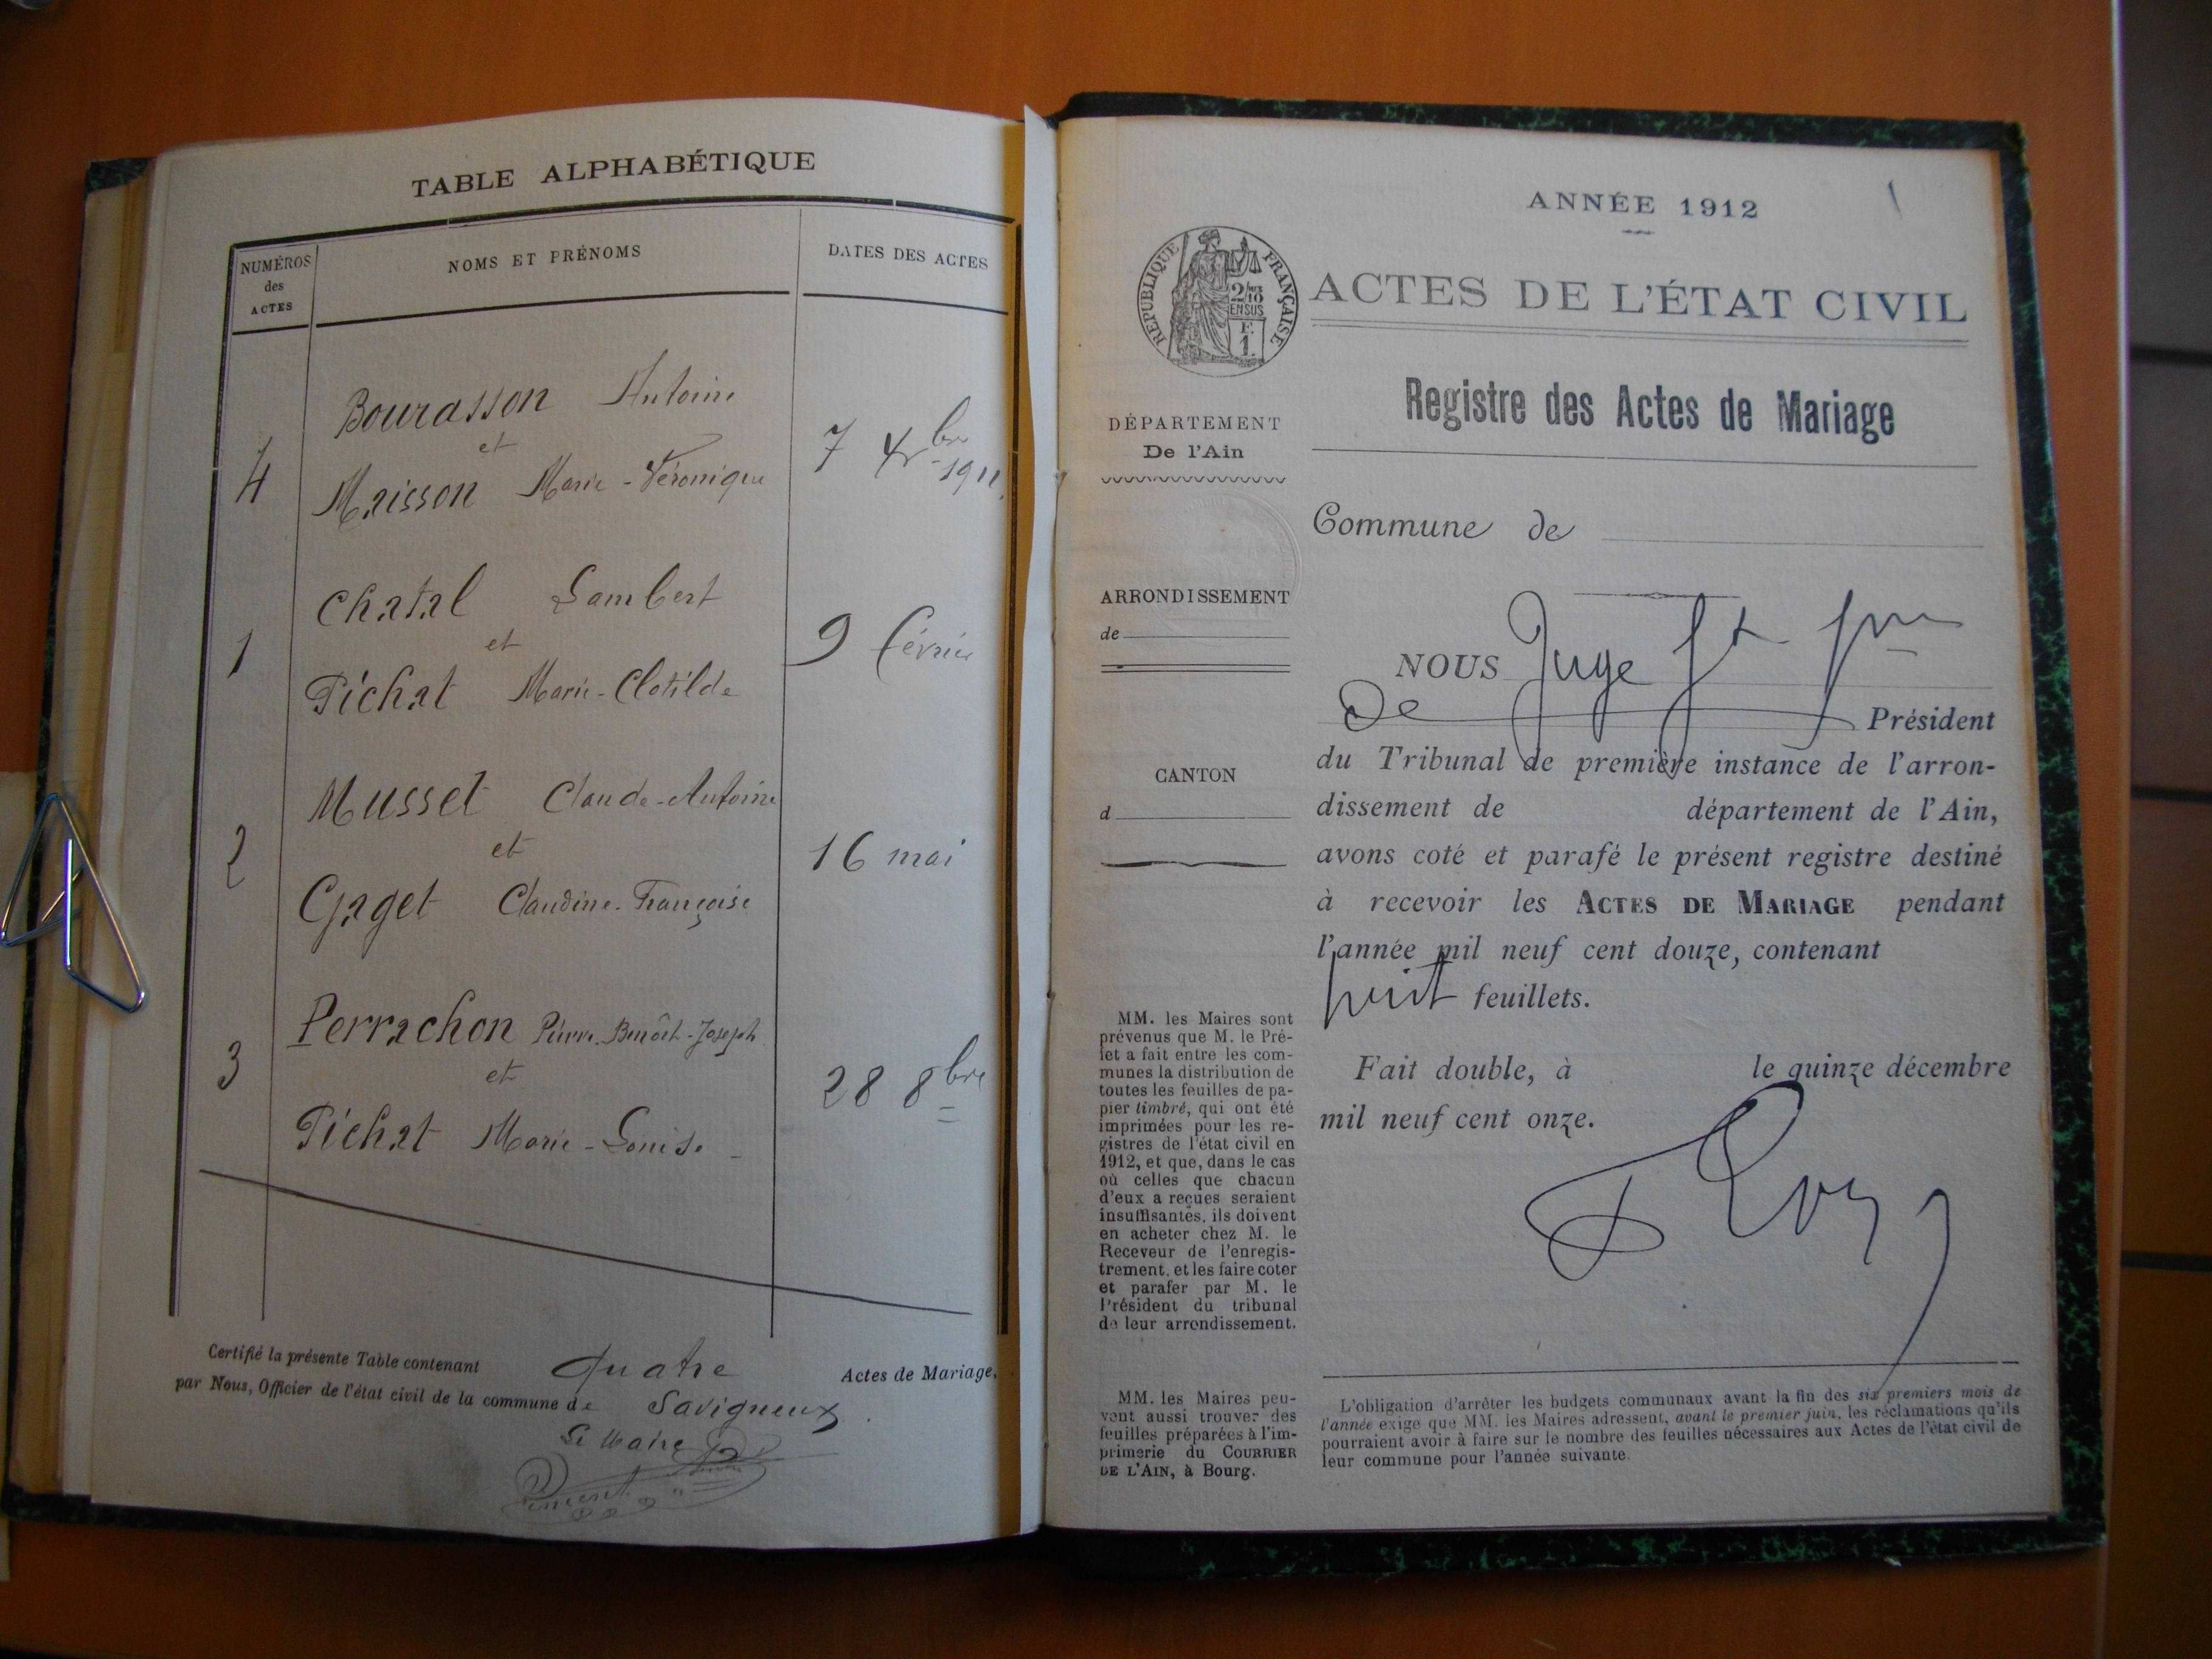 TABLE ALPHABÉTIQUE
NUMÉROS
des
ACTES
NOMS ET PRÉNOMS
DATES DES ACTES
Bourasson Antoine
et
4
Maisson Marie-Véronique
7 Xbre 1911
Chatal Lambert
et
1
9 février
Pichat Marie-Clotilde
Musset Claude-Antoine
et
2
16 mai
Gaget Claudine-Françoise
Perrachon Pierre-Benoît-Joseph
et
3
28 8bre
Pichat Marie-Louise
Certifié la présente Table contenant Quatre Actes de Mariage,
par Nous, Officier de l'état civil de la commune de Savigneux.
Le Maire
ANNÉE 1912
ACTES DE L'ÉTAT CIVIL
RÉPUBLIQUE FRANÇAISE
2/10
EN SUS
E
1.
Registre des Actes de Mariage
DÉPARTEMENT
De l'Ain
Commune de
ARRONDISSEMENT
de
CANTON
d
NOUS Juge
De Président
du Tribunal de première instance de l'arron-
dissement de département de l'Ain,
avons coté et parafé le présent registre destiné
à recevoir les ACTES DE MARIAGE pendant
l'année mil neuf cent douze, contenant
huit feuillets.
Fait double, à le quinze décembre
mil neuf cent onze.
MM. les Maires sont
prévenus que M. le Pré-
fet a fait entre les com-
munes la distribution de
toutes les feuilles de pa-
pier timbré, qui ont été
imprimées pour les re-
gistres de l'état civil en
1912, et que, dans le cas
où celles que chacun
d'eux a reçues seraient
insuffisantes, ils doivent
en acheter chez M. le
Receveur de l'enregis-
trement, et les faire coter
et parafer par M. le
Président du tribunal
de leur arrondissement.
MM. les Maires peu-
vent aussi trouver des
feuilles préparées à l'im-
primerie du COURRIER
DE L'AIN, à Bourg.
L'obligation d'arrêter les budgets communaux avant la fin des six premiers mois de
l'année exige que MM. les Maires adressent, avant le premier juin, les réclamations qu'ils
pourraient avoir à faire sur le nombre des feuilles nécessaires aux Actes de l'état civil de
leur commune pour l'année suivante.